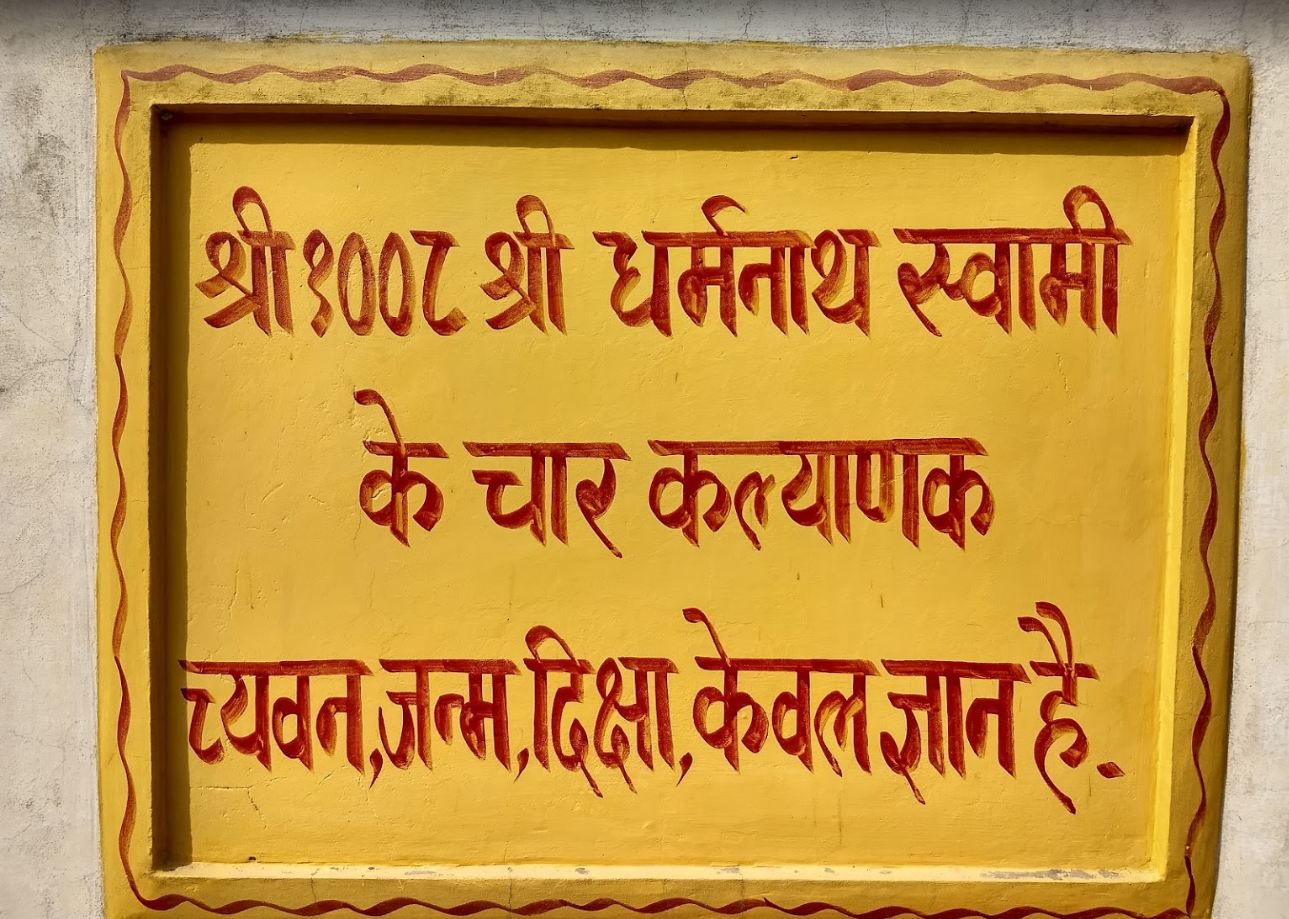 श्री १००८ श्री धर्मनाथ स्वामी
के चार कल्याणक
च्यवन, जन्म, दिक्षा, केवल ज्ञान है.